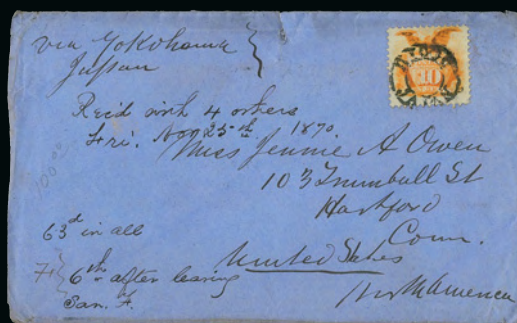 via Yokohama
Japan
Rec'd with 4 others
Fri. Nov 25th 1870.
Miss Jennie A Owen
103 Trumbull St
Hartford
Conn.
United States
North America
63d in all
7 6th after leaving
San. F.
100.00
HIOGO
JAPAN
10